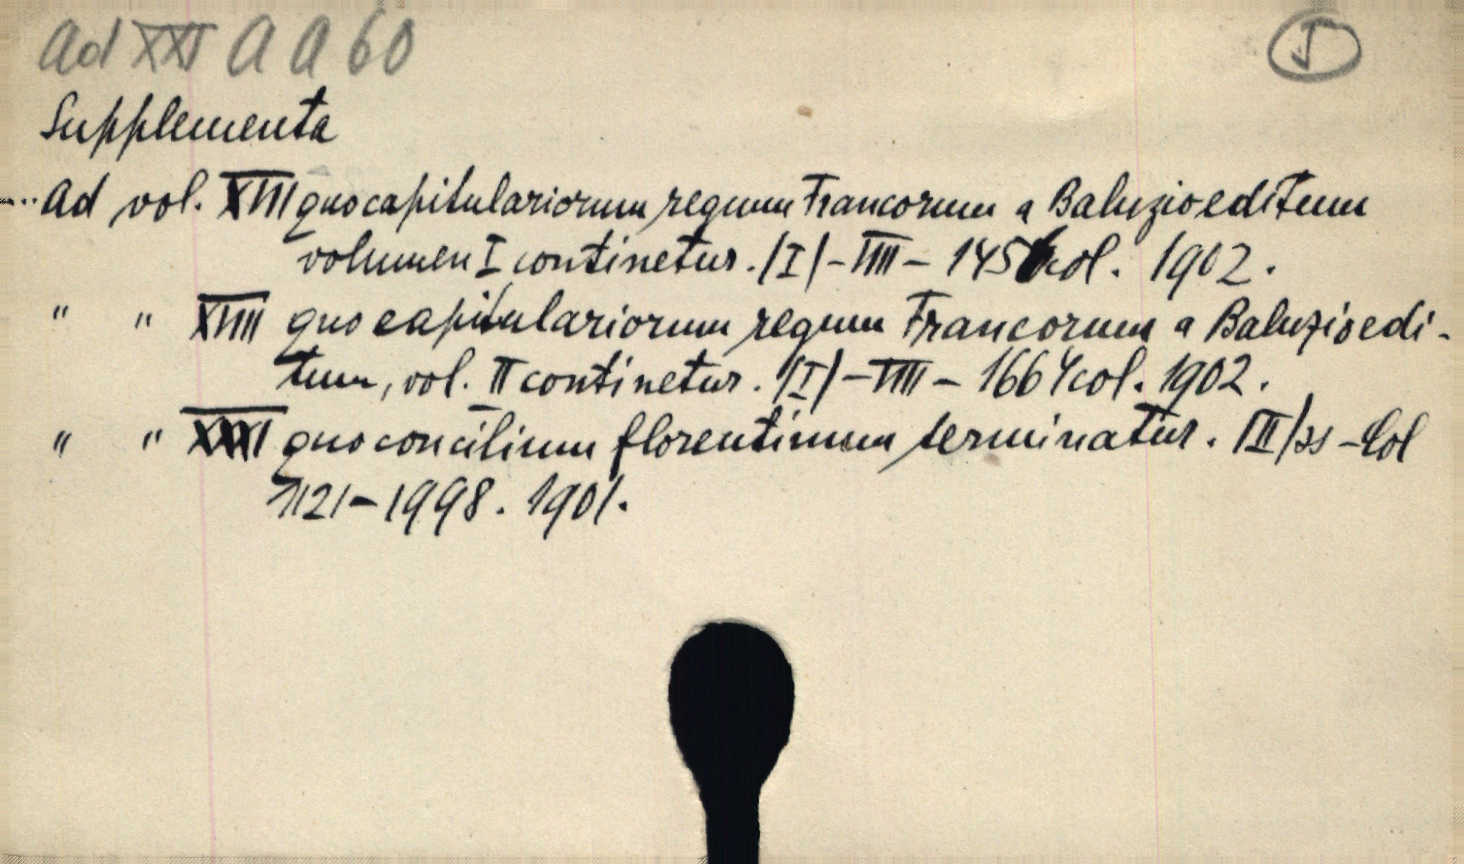 Ad XXI A A 60 J
Supplementa
Ad vol. XVII quo capitulariorum regum Francorum a Baluzio editum
volumen I continetur. (I)-VIII- 1456 col. 1902.
" " XVIII quo capitulariorum regum Francorum a Baluzio edi-
tum, vol. II continetur. (I)-VIII- 1664 col. 1902.
" " XXXI quo concilium florentinum terminatur. (II) ss - Col
1121-1998. 1901.